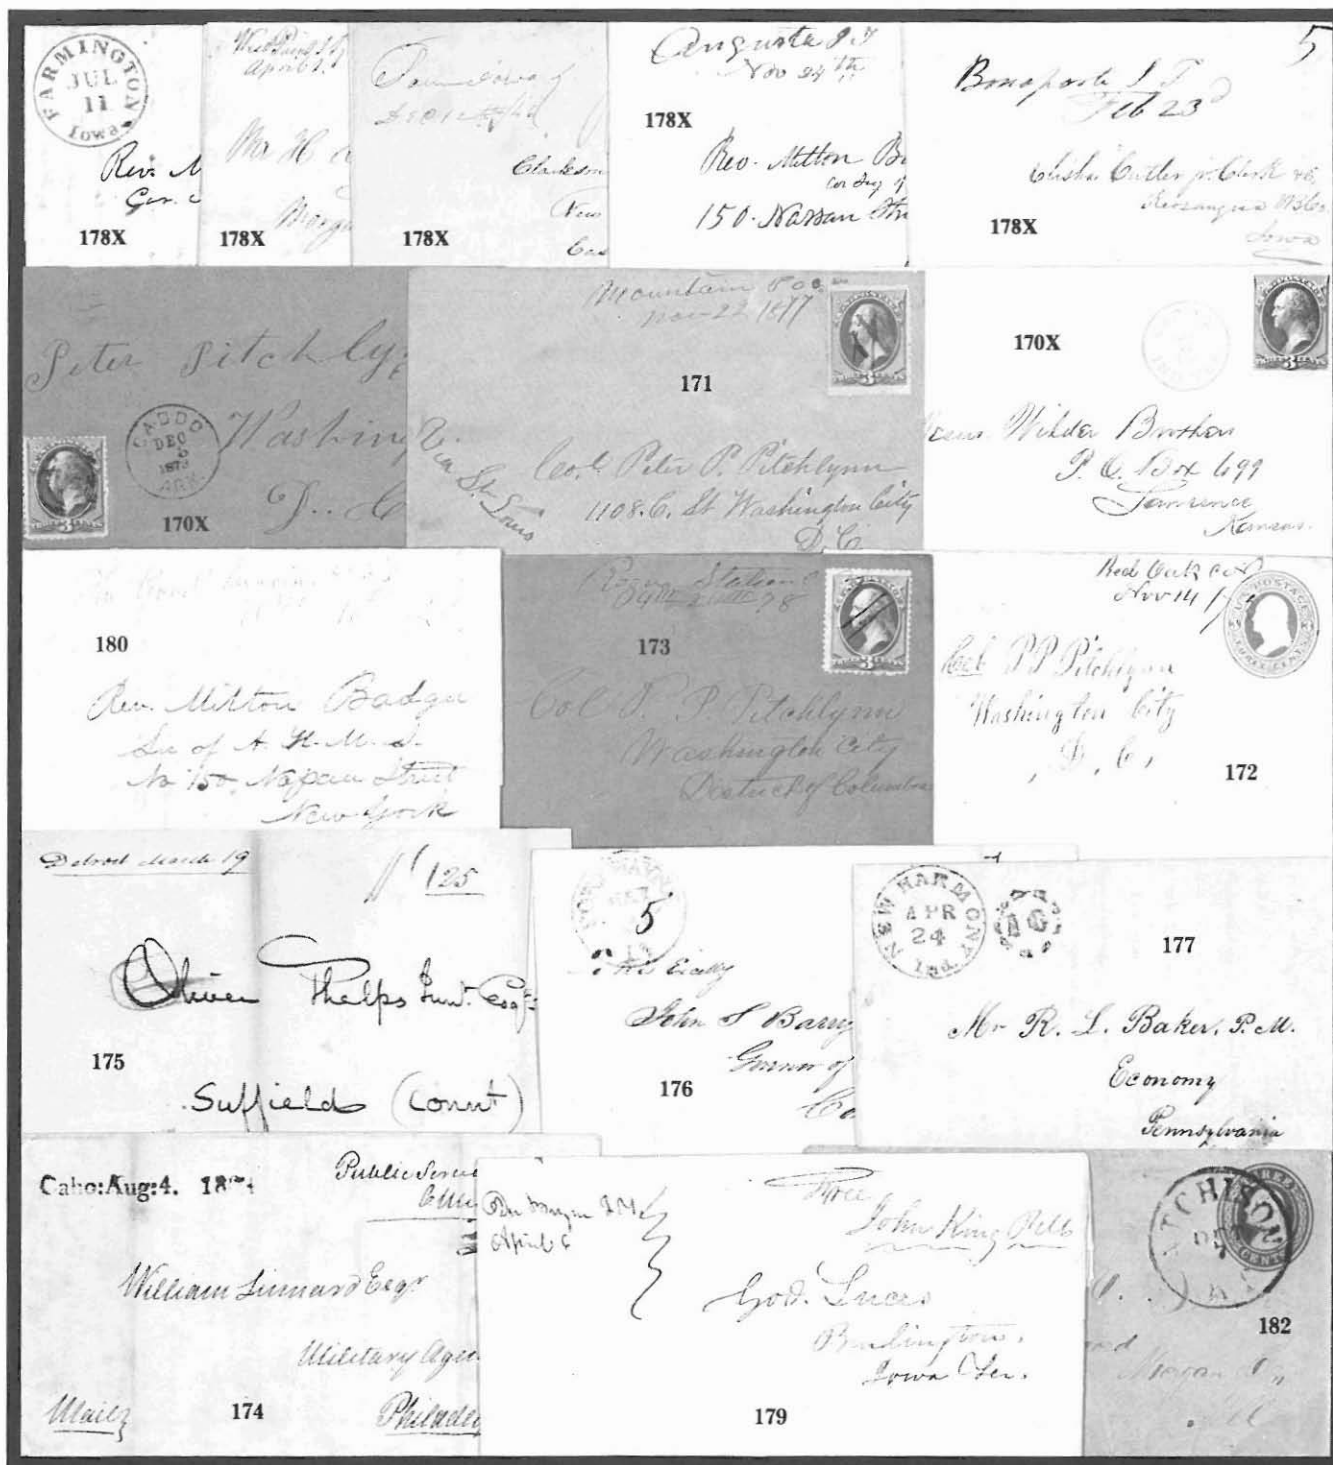 FARMINGTON
JUL
11
Iowa
Rev. M
178X
April
Mr H
178X
178X
Augusta I.T
Nov 24th
178X
Rev. Milton B
150. Nassau Stre
Bonaparte I T
Feb 23d
5
Elisha Cutler jr. Clerk
Iowa
178X
Peter Pitchly
Washing
D.. C
CADDO
DEC
1873
ARK.
170X
Mountain
Nov 22 1877
171
Via St. Louis
Col. Peter P. Pitchlynn
1108. C. St Washington City
D C
170X
Wilder Brothers
P. O. Box 699
Lawrence
Kansas.
180
Rev. Milton Badger
Sec of A. H. M. S.
No 150. Nassau Street
New York
Station
173
Col P. P. Pitchlynn
Washington City
District of Columbia
Red Oak
Nov 14
U.S. POSTAGE
THREE CENTS
Col. P P Pitchlynn
Washington City
D. C,
172
Detroit March 19
125
Oliver Phelps Junr. Esqr
175
Suffield (Connt)
5
John S Barry
176
NEW HARMONY
APR
24
Ind.
10
177
Mr R. L. Baker, P. M.
Economy
Pennsylvania
Caho:Aug:4.
Public Servi
William Linnard Esqr
Military Agen
Mail
174
Philadel
April 6
Free
John King PM
Gov. Lucas
Burlington,
Iowa Ter.
179
ATCHISON
182
Morgan